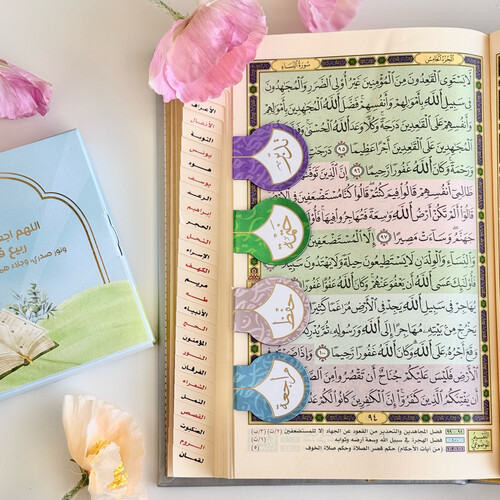 سورة النساء
الجزء الخامس
لَّا يَسْتَوِي الْقَاعِدُونَ مِنَ الْمُؤْمِنِينَ غَيْرُ أُولِي الضَّرَرِ وَالْمُجَاهِدُونَ
فِي سَبِيلِ اللَّهِ بِأَمْوَالِهِمْ وَأَنفُسِهِمْ فَضَّلَ اللَّهُ الْمُجَاهِدِينَ بِأَمْوَالِهِمْ
وَأَنفُسِهِمْ عَلَى الْقَاعِدِينَ دَرَجَةً وَكُلًّا وَعَدَ اللَّهُ الْحُسْنَى
الْمُجَاهِدِينَ عَلَى الْقَاعِدِينَ أَجْرًا عَظِيمًا ٩٥ دَرَجَاتٍ
وَرَحْمَةً وَكَانَ اللَّهُ غَفُورًا رَّحِيمًا ٩٦ إِنَّ الَّذِينَ
ظَالِمِي أَنفُسِهِمْ قَالُوا فِيمَ كُنتُمْ قَالُوا كُنَّا مُسْتَضْعَفِينَ فِي
قَالُوا أَلَمْ تَكُنْ أَرْضُ اللَّهِ وَاسِعَةً فَتُهَاجِرُوا فِيهَا
جَهَنَّمُ وَسَاءَتْ مَصِيرًا ٩٧ إِلَّا الْمُسْتَضْعَفِينَ
وَالنِّسَاءِ وَالْوِلْدَانِ لَا يَسْتَطِيعُونَ حِيلَةً وَلَا يَهْتَدُونَ
عَسَى اللَّهُ أَن يَعْفُوَ عَنْهُمْ وَكَانَ اللَّهُ عَفُوًّا غَفُورًا
يُهَاجِرْ فِي سَبِيلِ اللَّهِ يَجِدْ فِي الْأَرْضِ مُرَاغَمًا كَثِيرًا
يَخْرُجْ مِن بَيْتِهِ مُهَاجِرًا إِلَى اللَّهِ وَرَسُولِهِ ثُمَّ يُدْرِكْهُ
وَقَعَ أَجْرُهُ عَلَى اللَّهِ وَكَانَ اللَّهُ غَفُورًا رَّحِيمًا ١٠٠ وَإِذَا
الْأَرْضِ فَلَيْسَ عَلَيْكُمْ جُنَاحٌ أَن تَقْصُرُوا مِنَ
أَن يَفْتِنَكُمُ الَّذِينَ كَفَرُوا إِنَّ الْكَافِرِينَ كَانُوا لَكُمْ
٩٤
فضل المجاهدين والتحذير من القعود عن الجهاد إلا للمستضعفين
فضل الهجرة في سبيل الله وسعة أرضه وثوابه
(من آيات الأحكام) حكم قصر الصلاة وحكم صلاة الخوف
تدبر
ختمة
حفظ
مراجعة
الأعراف
الأنفال
التوبة
يونس
هود
يوسف
الرعد
إبراهيم
الحجر
النحل
الإسراء
الكهف
مريم
طه
الأنبياء
الحج
المؤمنون
النور
الفرقان
الشعراء
النمل
القصص
العنكبوت
الروم
لقمان
اللهم
ربيع
ونور صدري، وجلاء